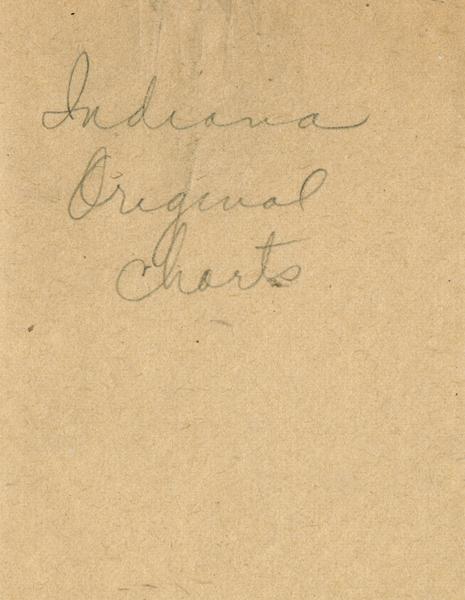 Indiana
Original
Charts